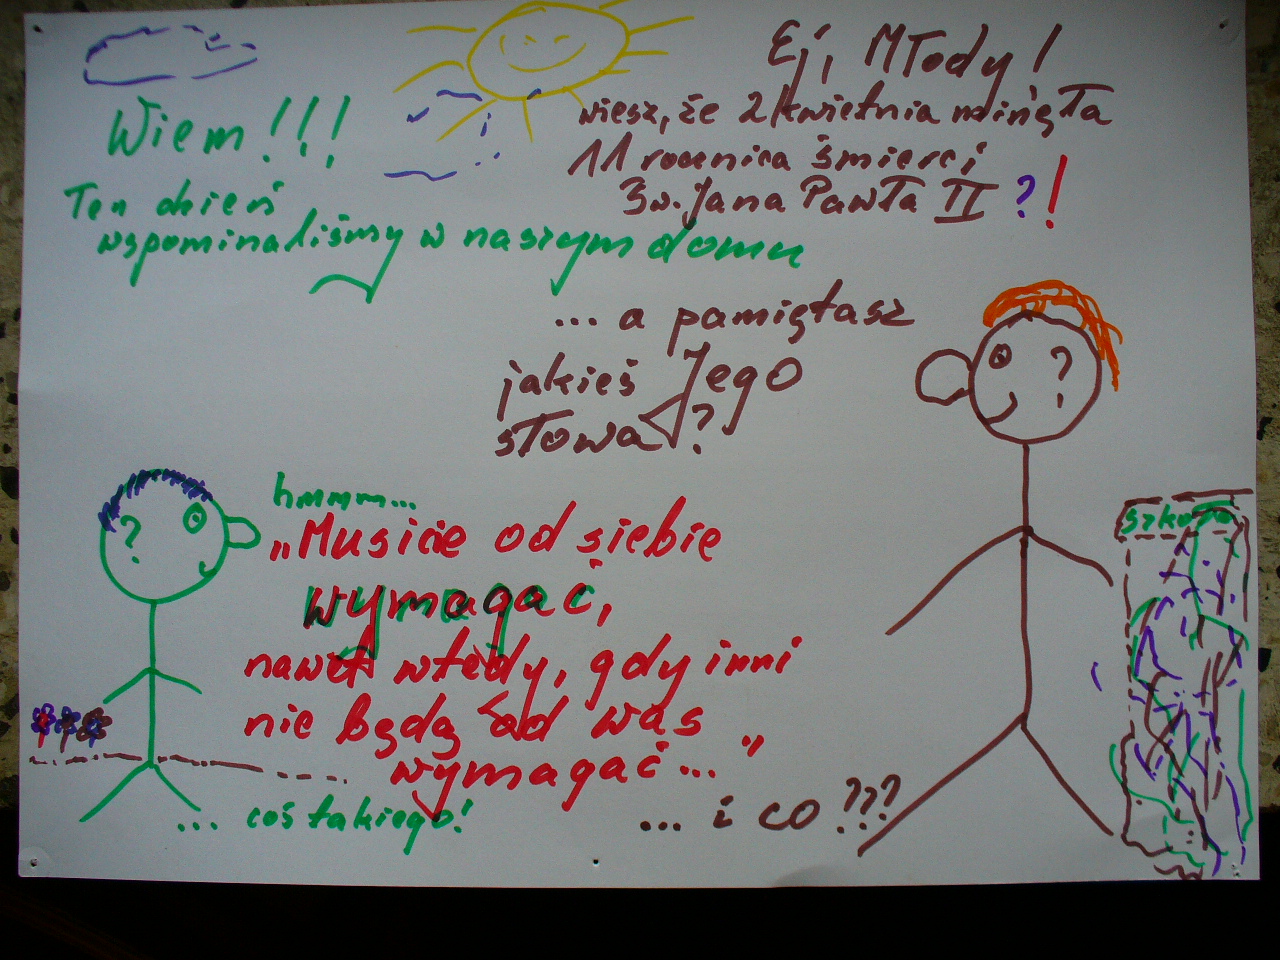 Ej, Młody!
wiesz, że 2 kwietnia minęła
11 rocznica śmierci
Św. Jana Pawła II ?!
Wiem!!!
Ten dzień
wspominaliśmy w naszym domu
... a pamiętasz
jakieś Jego
słowa?
hmmm...
„Musicie od siebie
wymagać,
nawet wtedy, gdy inni
nie będą od was
wymagać... „
... coś takiego!
... i co ???
szkoła